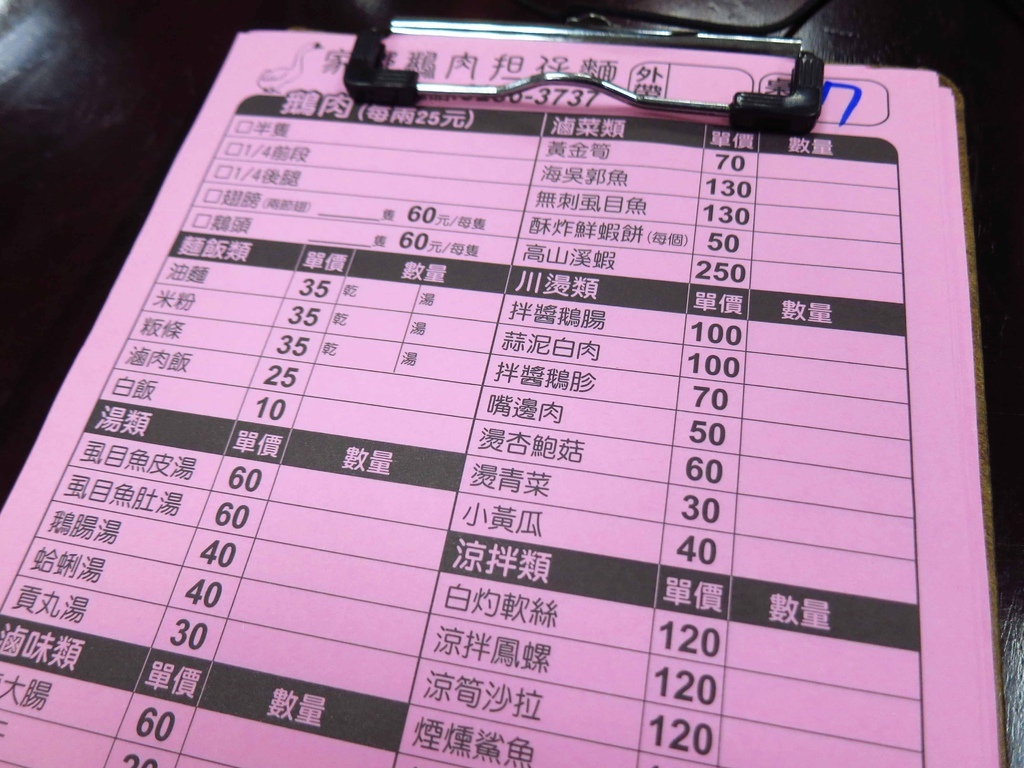 鵝肉担仔麵 外帶
-3737 7
鵝肉(每兩25元)
□半隻
□1/4前段
□1/4後腿
□翅膀(兩節翅)______隻 60元/每隻
□鵝頭 ______隻 60元/每隻
麵飯類 單價 數量
油麵 35 乾 湯
米粉 35 乾 湯
粄條 35 乾 湯
滷肉飯 25
白飯 10
湯類 單價 數量
虱目魚皮湯 60
虱目魚肚湯 60
鵝腸湯 40
蛤蜊湯 40
貢丸湯 30
滷味類 單價 數量
大腸 60
20
滷菜類 單價 數量
黃金筍 70
海吳郭魚 130
無刺虱目魚 130
酥炸鮮蝦餅(每個) 50
高山溪蝦 250
川燙類 單價 數量
拌醬鵝腸 100
蒜泥白肉 100
拌醬鵝胗 70
嘴邊肉 50
燙杏鮑菇 60
燙青菜 30
小黃瓜 40
涼拌類 單價 數量
白灼軟絲 120
涼拌鳳螺 120
涼筍沙拉 120
煙燻鯊魚